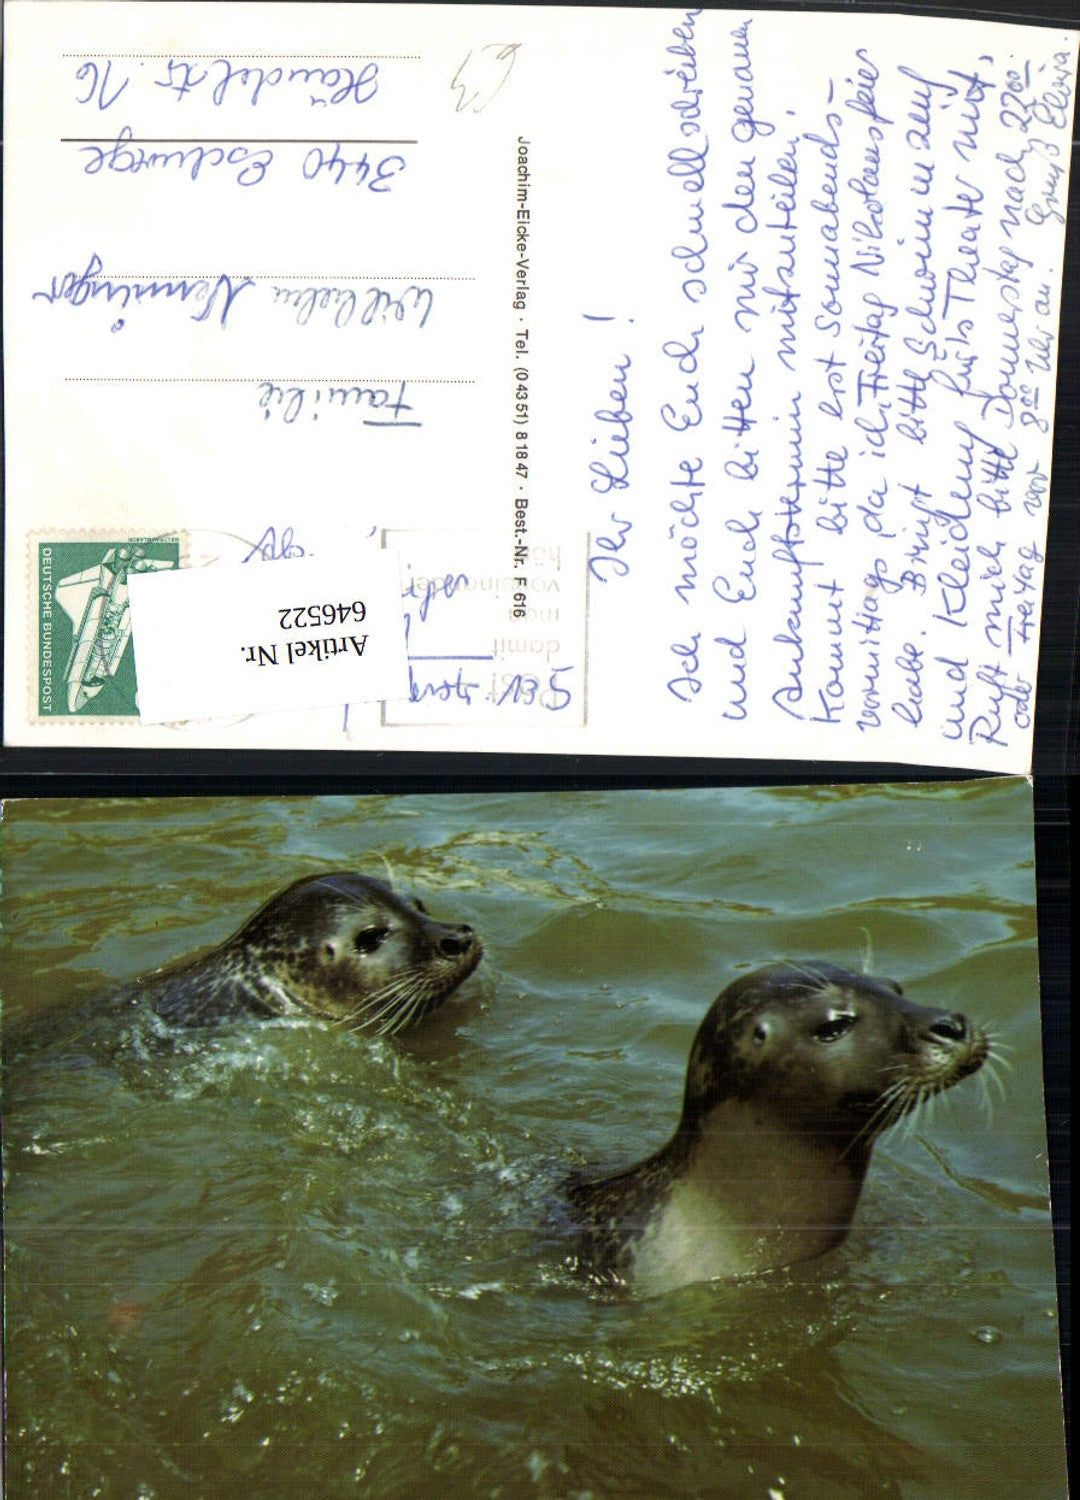 Ihr Lieben!
Ich möchte Euch schnell schreiben
und Euch bitten mir den genauen
Ankunftstermin mitzuteilen!
Kommt bitte erst Sonnabends-
vormittags, da ich Freitag Nikolausfeier
habe. Bringt bitte Schwimmzeug
und Kleidung fürs Theater mit,
Ruft mich bitte Donnerstag nach 22⁰⁰
oder Freitag vor 8⁰⁰ Uhr an. Gruß
Joachim-Eicke-Verlag · Tel. (0 43 51) 8 18 47 · Best.-Nr. F 616
damit
man
voneinander
hört
DEUTSCHE BUNDESPOST
WELTRAUMLABOR
Artikel Nr.
646522
Familie
Wilhelm Nenninger
3440 Eschwege
Händelstr. 16